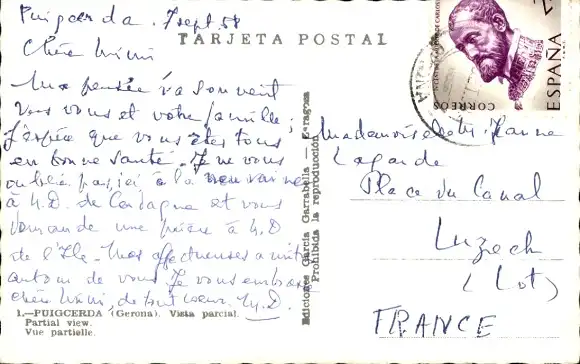 Puigcerda. 7 sept 58
TARJETA POSTAL
Chère Mimi
Ma pensée va souvent
vers vous et votre famille,
J'espère que vous êtes tous
en bonne santé. Je ne vous
oublie pas, ici à la neuvaine
à N.D. de Cerdagne et vous
demande une prière à N.D
de l'Ile. Mes affectueuses amitiés
autour de vous. Je vous embrasse
chère Mimi, de tout coeur. M.D.
1.—PUIGCERDA (Gerona). Vista parcial.
Partial view.
Vue partielle.
Ediciones García Garrabella — Zaragoza
Prohibida la reproducción
CORREOS
ESPAÑA
Mademoiselle Jeanne
Lagarde
Place du Canal
Luzech
(Lot)
FRANCE